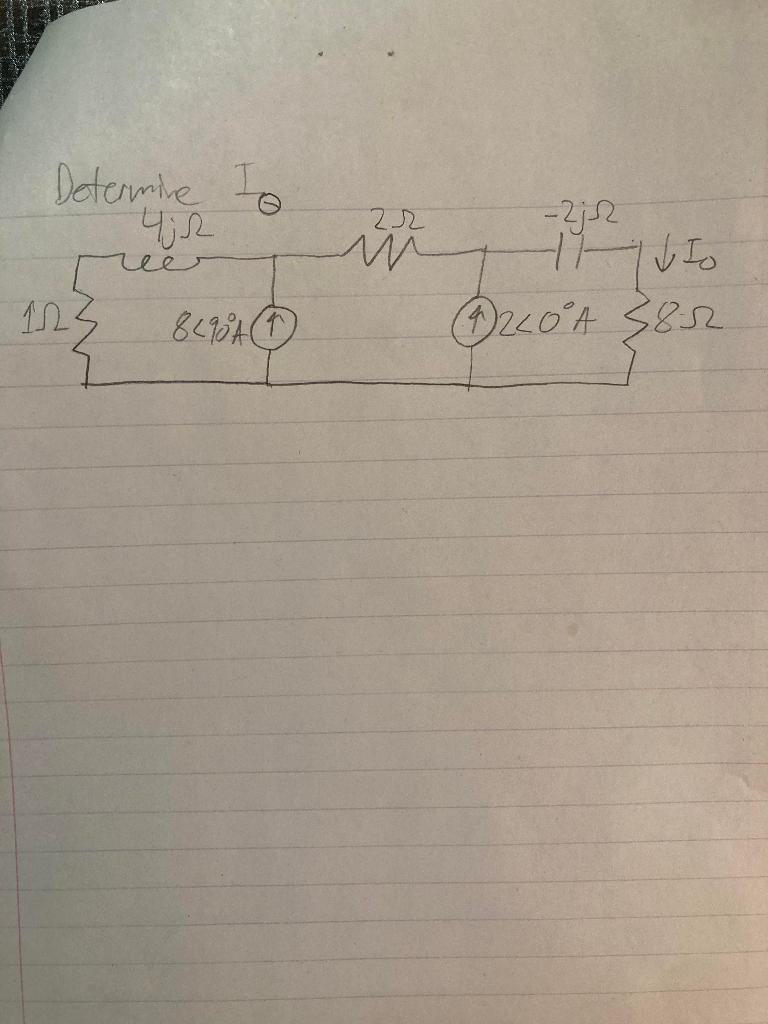 Determine I₀
4jΩ 2Ω -2jΩ
↓ I₀
1Ω 8<90°A ↑ ↑ 2<0°A 8Ω